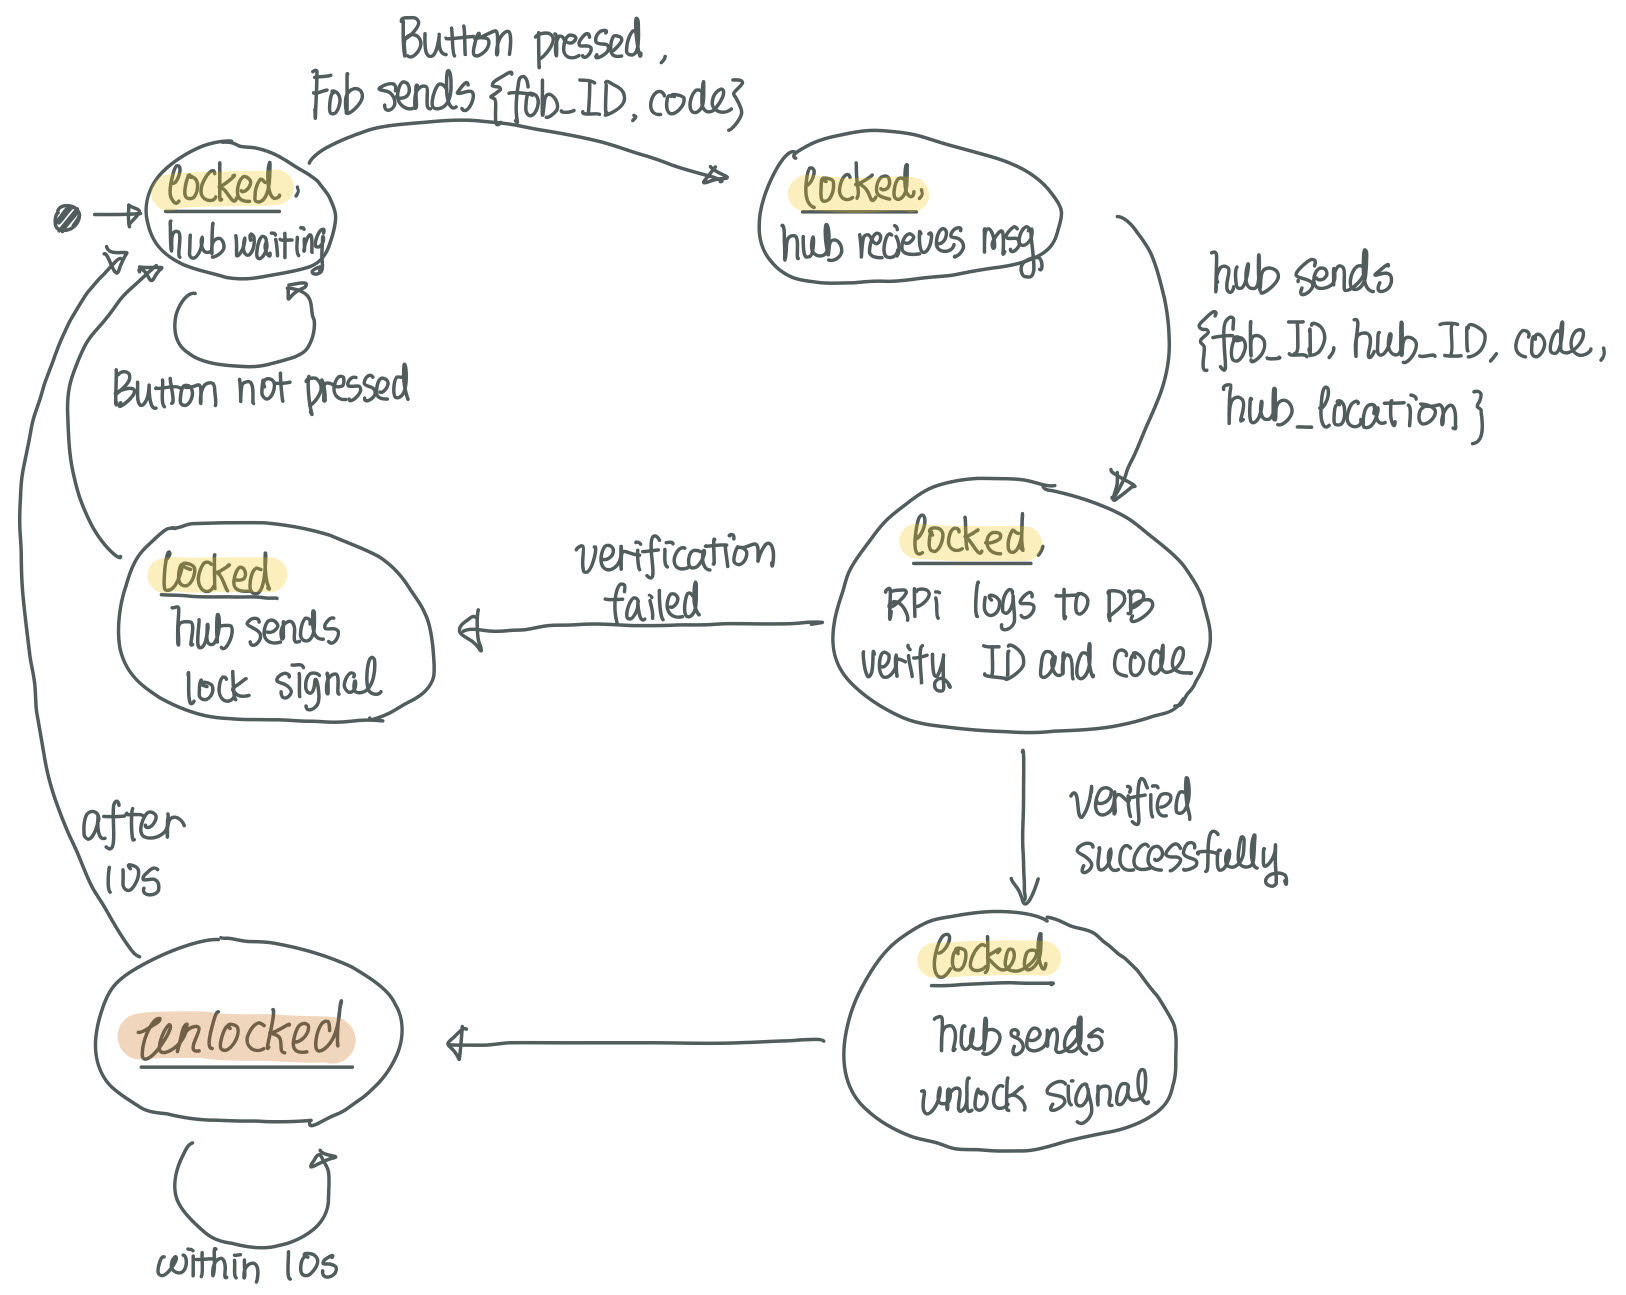 Button pressed,
Fob sends {fob_ID, code}
locked,
hub waiting
locked,
hub recieves msg
hub sends
{fob_ID, hub_ID, code,
hub_location}
Button not pressed
locked,
RPi logs to DB
verify ID and code
verification
failed
locked
hub sends
lock signal
verified
successfully
locked
hub sends
unlock signal
after
10s
unlocked
within 10s